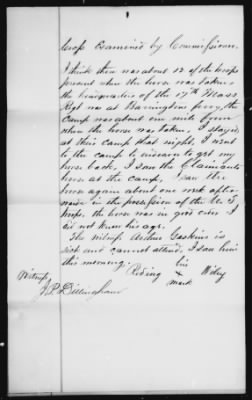 Cross Examined by Commissioner.
I think there was about 12 of the troops
present when the horse was taken,
the headquarters of the 17th Mass
Regt was at Barrington ferry, the
Camp was about one mile from
where the horse was taken, I stayed
at this Camp that night, I went
to the camp to endeavor to get my
horse back, I saw the Claimants
horse at the camp, I saw the
horse again about one week after-
wards in the possession of the U. S.
troops, the horse was in good order I
did not know his age.
The witness Gaskins is
sick and cannot attend, I saw him
this morning.
his
Witness Riding x Wiley
mark
J. P. Dillingham